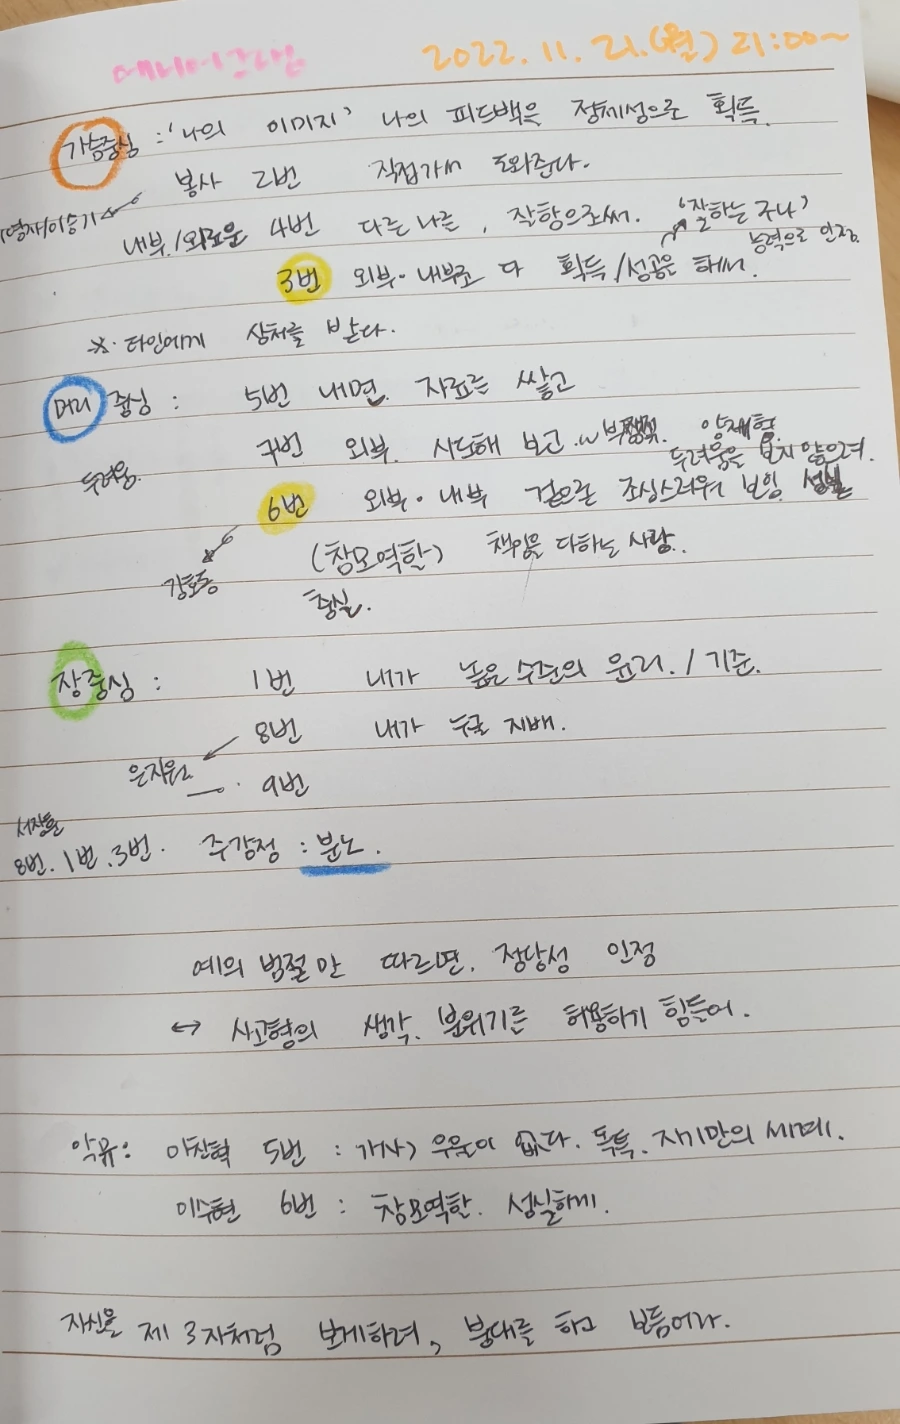 에니어그램 2022.11.21.(월) 21:00~
가슴중심 : '나의 이미지' 나의 피드백은 정체성으로 획득.
봉사 2번 직접가서 도와준다.
/이승기
내부/외로운 4번 다른 나를, 착함으로써. '잘하는 구나'
능력으로 인정.
3번 외부·내부로 다 획득/성공을 해서.
※. 타인에게 상처를 받다.
머리 중심 : 5번 내면. 자료를 쌓고
7번 외부. 시도해 보고. 양세형.
두려움. 두려움을 보지 않으려.
6번 외부·내부 겉으로 조심스러워 보임.
(참모역할) 책임을 다하는 사람.
강호동
충실.
장중심 : 1번 내가 높은 수준의 윤리. / 기준.
8번 내가 누굴 지배.
은지원
9번
서장훈
8번. 1번. 3번. 주감정 : 분노.
예의 범절만 따르면. 정당성 인정
↔ 사고형의 생각. 분위기를 허용하기 힘들어.
악뮤: 이찬혁 5번 : 가사) 우울이 없다. 독특. 자기만의 세계.
이수현 6번 : 참모역할. 성실하게.
자신을 제 3자처럼 보게하려, 붕대를 하고 보듬어라.